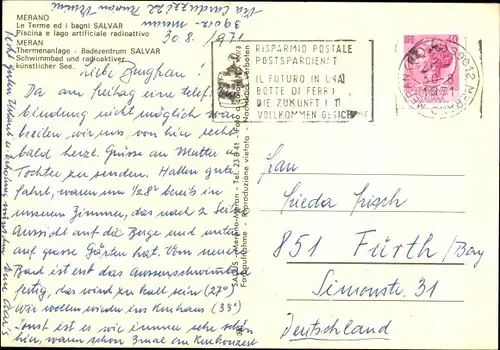 MERANO
Le Terme ed i bagni SALVAR
Piscina e lago artificiale radioattivo
MERAN
Thermenanlage - Badezentrum SALVAR
Schwimmbad und radioaktiver
künstlicher See.
39012 - Meran
30. 8. 1971
Liebe Bergfrau!
Da am Freitag eine Telef
bindung nicht möglich war
beeilen wir uns, von hier recht
bald herzl. Grüsse an Mutter u.
Tochter zu senden. Hatten gute
Fahrt, waren um 1/2 8h bereits in
unserem Zimmer, das nach 2 Seiten
Aussicht auf die Berge und unten
auf grosse Gärten hat. Vom neuen
Bad ist erst das Aussenschwimmb
fertig, das wird zu kalt sein (27°)
Wir wollen wieder ins Kurhaus (33°)
Sonst ist es wie immer sehr schön
hier, waren schon 3mal am Kurkonzert
SALUS - Merano-Meran - Tel. 23 8 41
Riproduzione vietata
RISPARMIO POSTALE
POSTSPARDIENST
IL FUTURO IN UNA
BOTTE DI FERRO
DIE ZUKUNFT IST
VOLLKOMMEN GESICH
39012 MERANO
MERAN
LIRE 40
Frau
Frieda Pisch
851 Fürth/Bay
Simonstr. 31
Deutschland